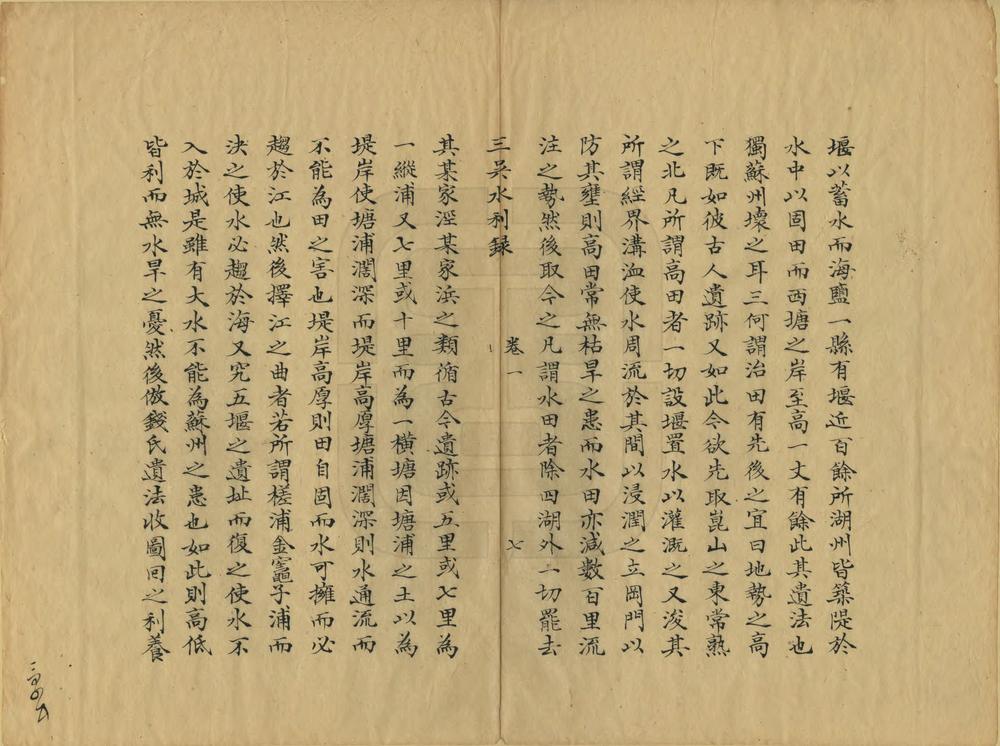 堰以蓄水而海鹽一縣有堰近百餘所湖州皆築隄於
水中以固田而西塘之岸至高一丈有餘此其遺法也
獨蘇州壞之耳三何謂治田有先後之宜曰地勢之高
下既如彼古人遺跡又如此今欲先取崑山之東常熟
之北凡所謂高田者一切設堰置水以灌溉之又浚其
所謂經界溝洫使水周流於其間以浸潤之立岡門以
防其壅則高田常無枯旱之患而水田亦減數百里流
注之勢然後取今之凡謂水田者除四湖外一切罷去
三吳水利錄 卷一 七
其某家涇某家浜之類循古今遺跡或五里或七里為
一縱浦又七里或十里而為一橫塘因塘浦之土以為
堤岸使塘浦濶深而堤岸高厚塘浦濶深則水通流而
不能為田之害也堤岸高厚則田自固而水可擁而必
趨於江也然後擇江之曲者若所謂槎浦金竈子浦而
決之使水必趨於海又究五堰之遺址而復之使水不
入於城是雖有大水不能為蘇州之患也如此則高低
皆利而無水旱之憂然後倣錢氏遺法收圖回之利養